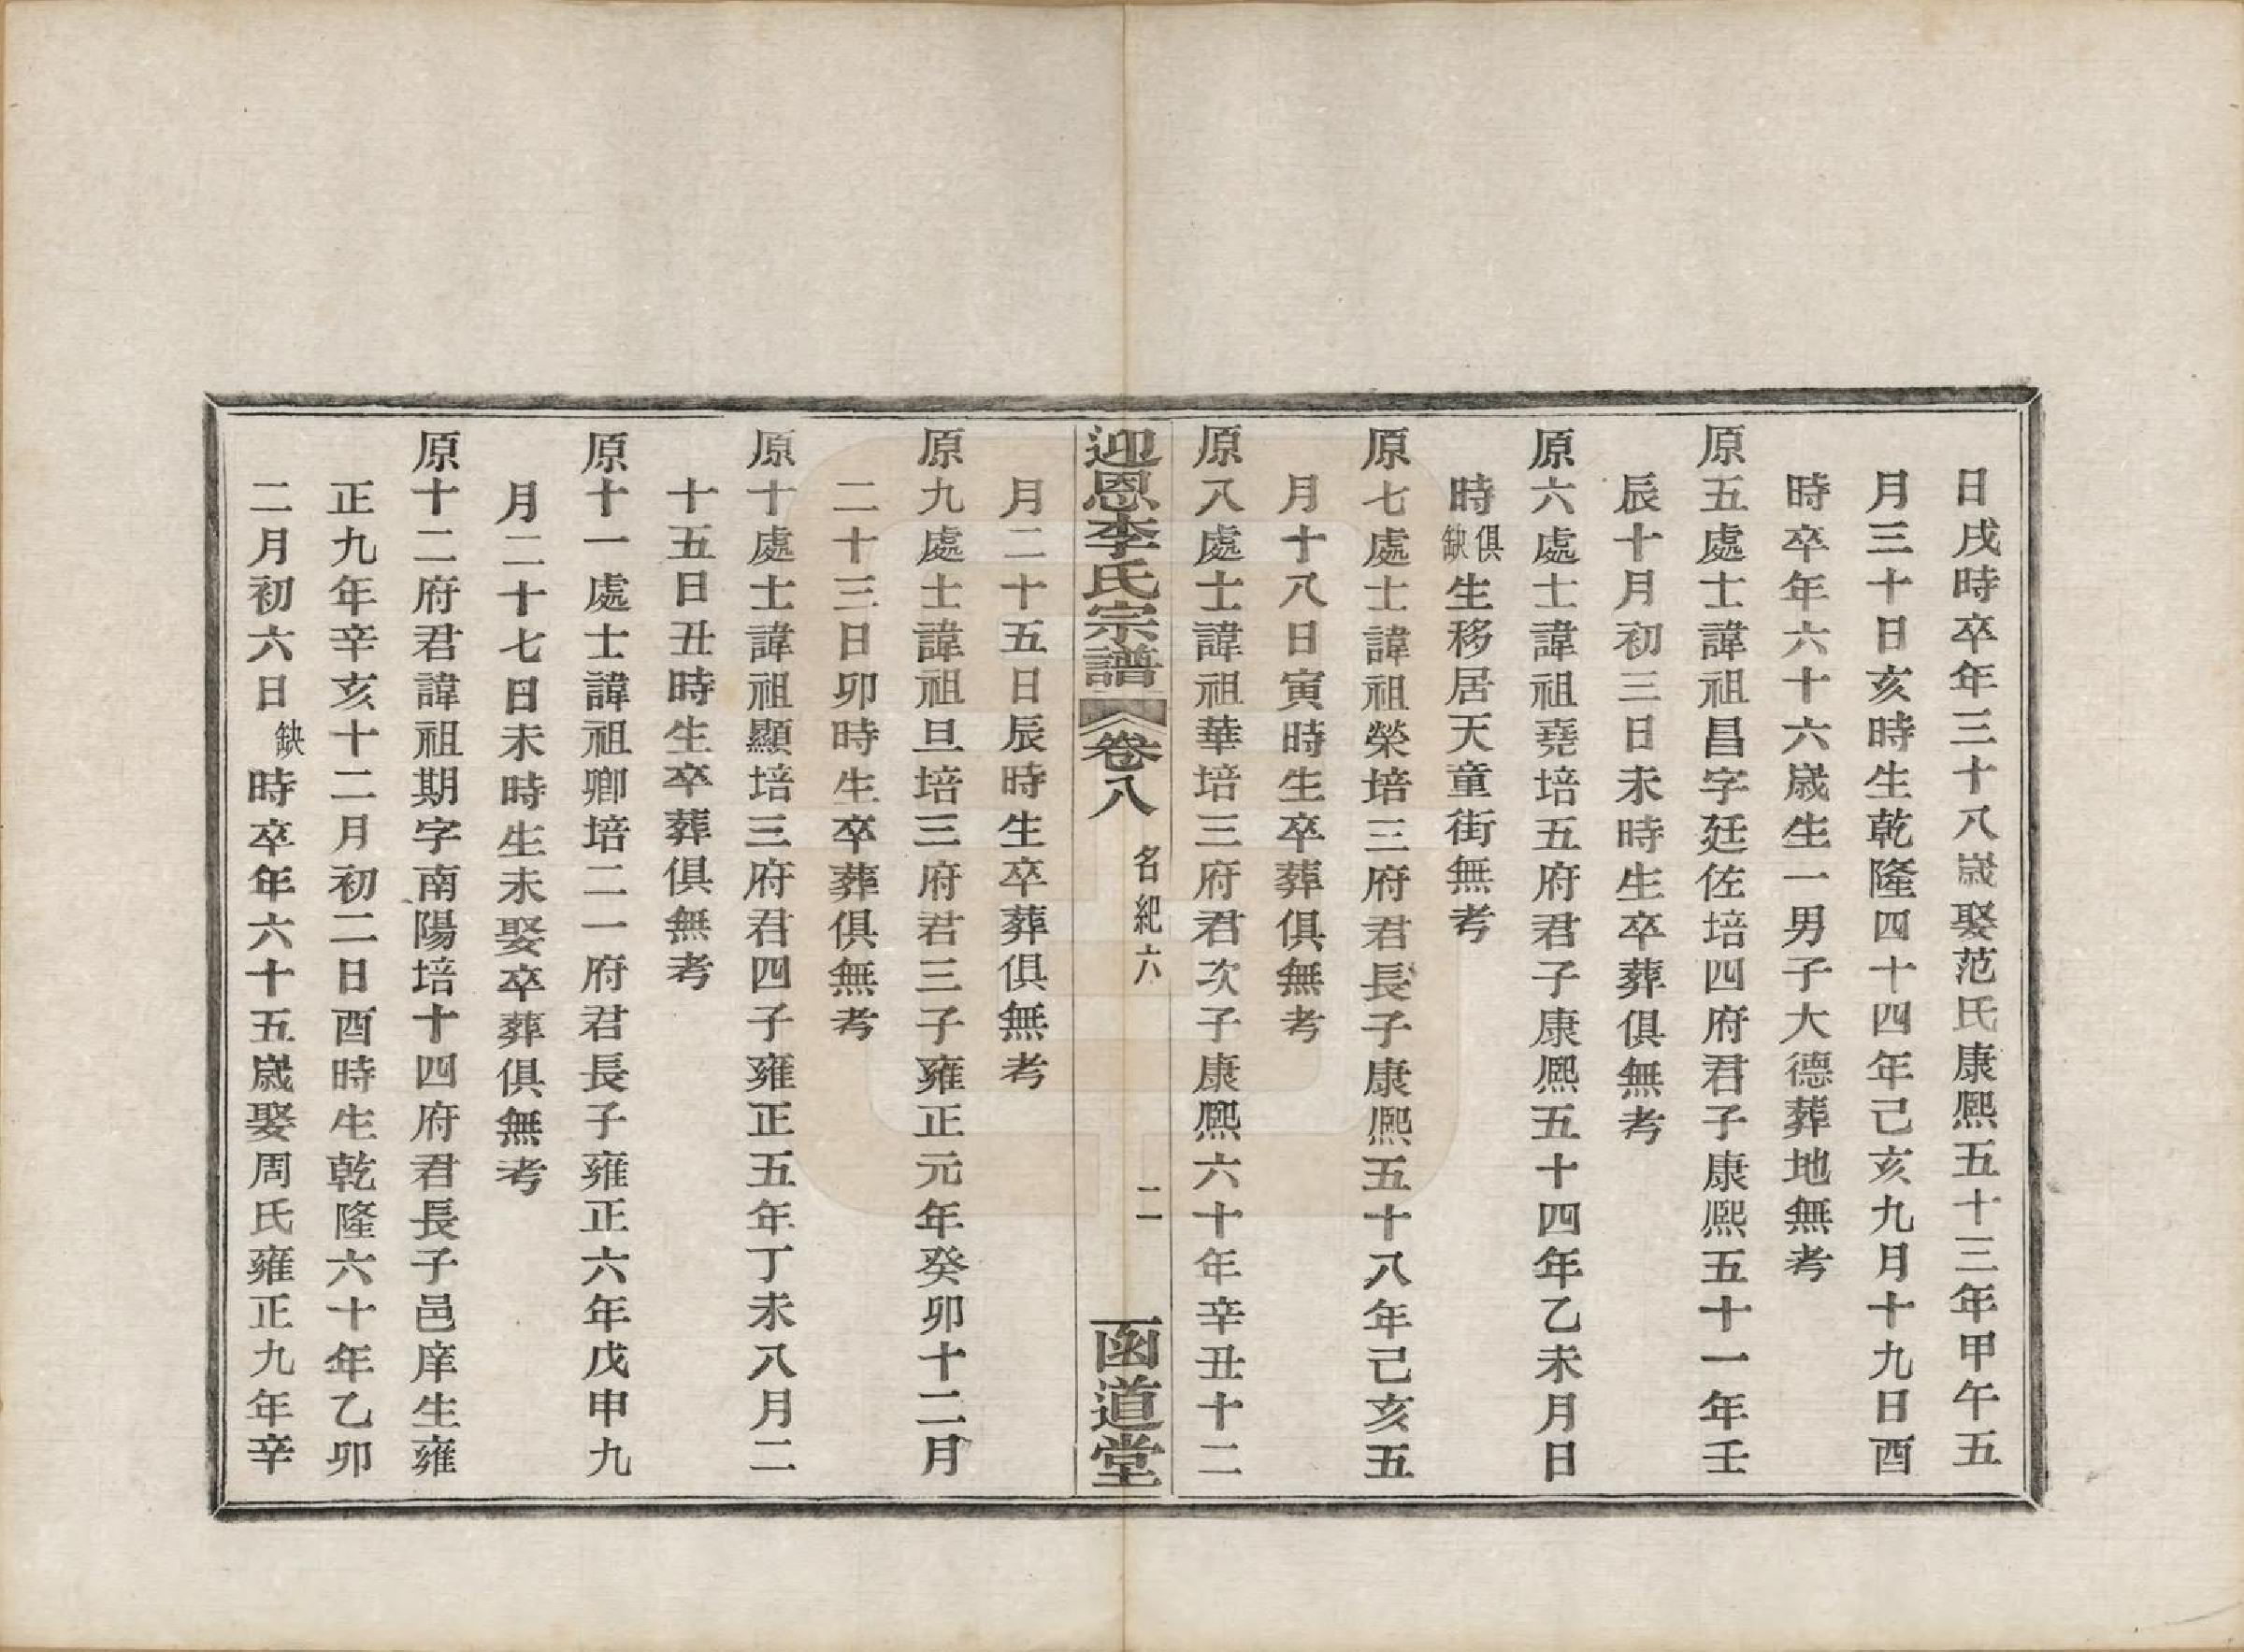 日戌時卒年三十八歲娶范氏康熙五十三年甲午五
月三十日亥時生乾隆四十四年己亥九月十九日酉
時卒年六十六歲生一男子大德葬地無考
原五處士諱祖昌字廷佐培四府君子康熙五十一年壬
辰十月初三日未時生卒葬俱無考
原六處士諱祖堯培五府君子康熙五十四年乙未月日
時俱缺生移居天童街無考
原七處士諱祖榮培三府君長子康熙五十八年己亥五
月十八日寅時生卒葬俱無考
原八處士諱祖華培三府君次子康熙六十年辛丑十二
迎恩李氏宗譜 卷八 名紀六 二 函道堂
月二十五日辰時生卒葬俱無考
原九處士諱祖旦培三府君三子雍正元年癸卯十二月
二十三日卯時生卒葬俱無考
原十處士諱祖顯培三府君四子雍正五年丁未八月二
十五日丑時生卒葬俱無考
原十一處士諱祖卿培二一府君長子雍正六年戊申九
月二十七日未時生未娶卒葬俱無考
原十二府君諱祖期字南陽培十四府君長子邑庠生雍
正九年辛亥十二月初二日酉時生乾隆六十年乙卯
二月初六日缺時卒年六十五歲娶周氏雍正九年辛